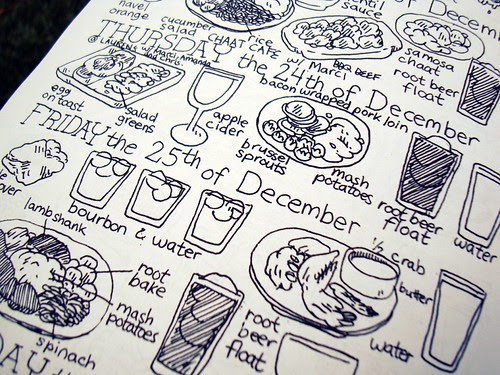 navel
orange
cucumber
salad
CHAAT CAFE
w/ Marci
lentil
sauce
BBQ BEEF
of December
samosa
chaat
root beer
float
THURSDAY the 24th of December
@ LAUREN'S w/ Marci, Amanda
egg
on toast
salad
greens
apple
cider
bacon wrapped pork loin
brussel
sprouts
mash
potatoes
root beer
float
water
FRIDAY the 25th of December
bourbon & water
lamb shank
root
bake
mash
potatoes
spinach
root
beer
float
1/2 crab
butter
water
DAY